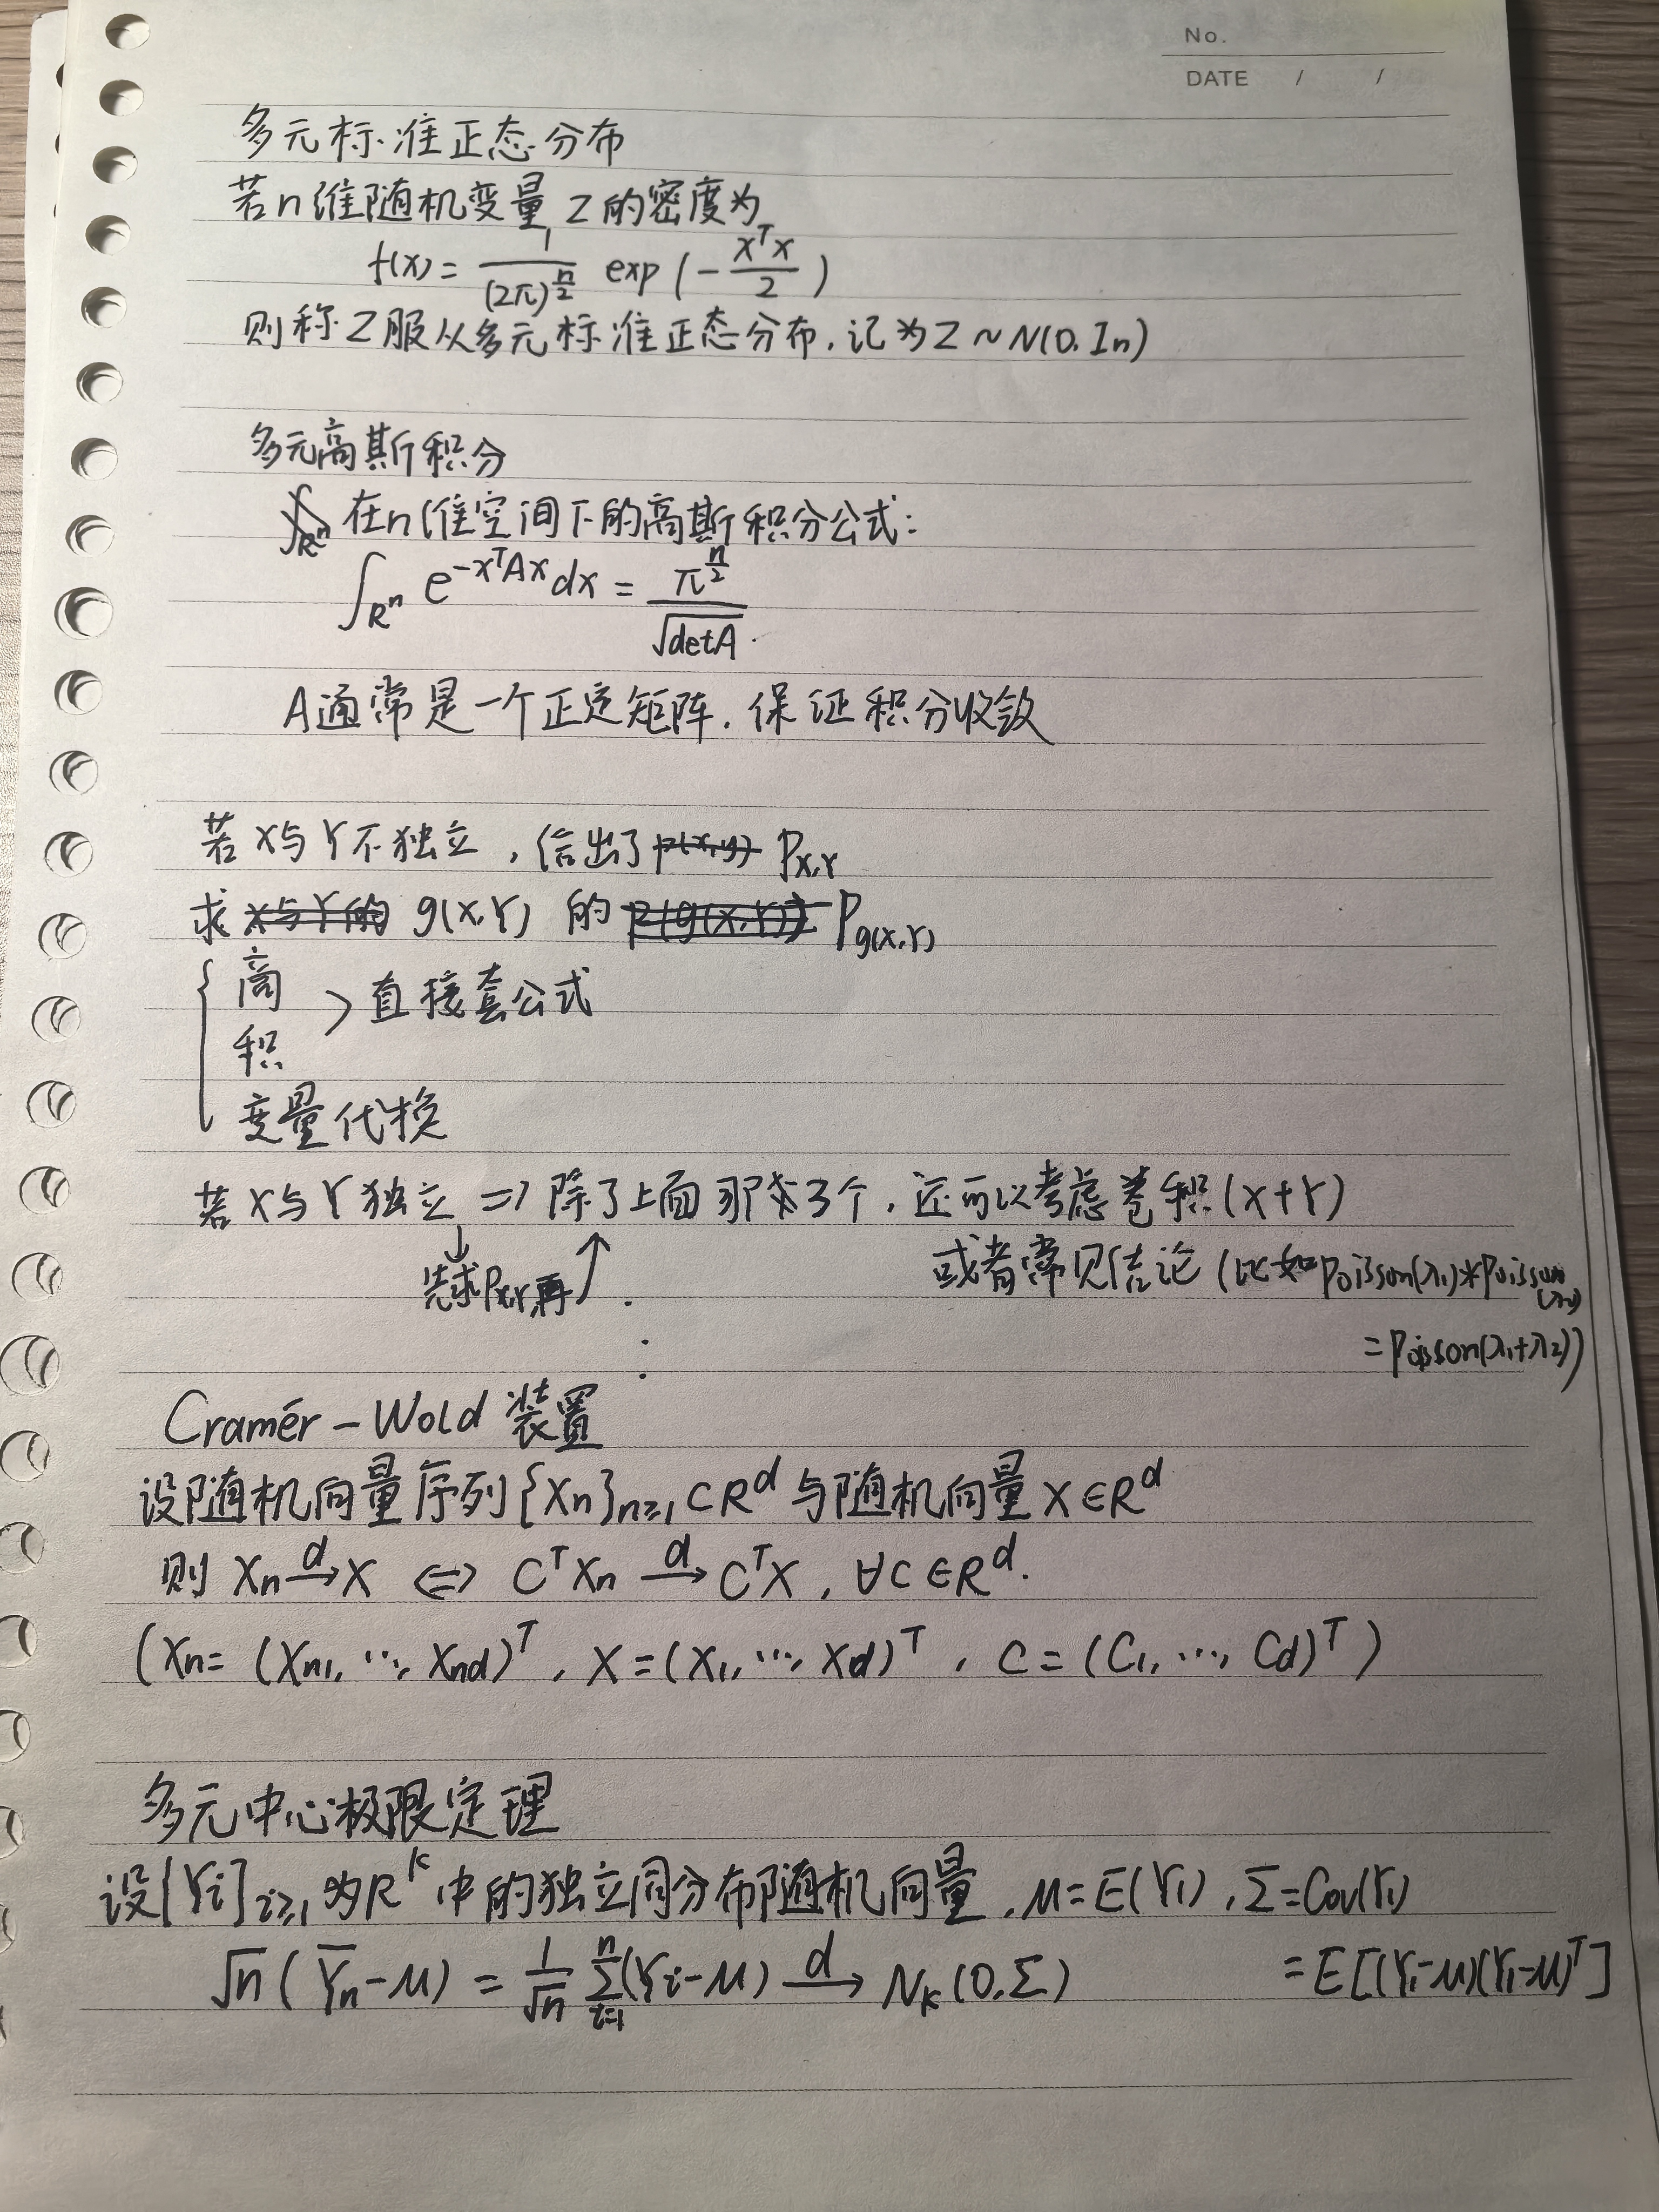 No.
DATE / /
多元标准正态分布
若n维随机变量 Z的密度为
f(x) = \frac{1}{(2π)^{\frac{n}{2}}} exp(-\frac{x^T x}{2})
则称Z服从多元标准正态分布,记为Z~N(0, In)
多元高斯积分
在n维空间下的高斯积分公式:
∫_{R^n} e^{-x^T A x} dx = \frac{π^{\frac{n}{2}}}{\sqrt{det A}}.
A通常是一个正定矩阵,保证积分收敛
若X与Y不独立,给出了 P_{X,Y}
求 g(X,Y) 的 P_{g(X,Y)}
{ 商
积 > 直接套公式
变量代换
若X与Y独立 => 除了上面那3个,还可以考虑卷积(X+Y)
↓先求P_{X,Y},再↑
或者常见结论(比如Poisson(λ1)*Poisson(λ2)
=Poisson(λ1+λ2))
Cramér-Wold 装置
设随机向量序列{Xn}_{n≥1}⊂R^d 与随机向量X∈R^d
则 Xn \xrightarrow{d} X ⇔ C^T Xn \xrightarrow{d} C^T X, ∀C∈R^d.
(Xn = (Xn1, ..., Xnd)^T, X = (X1, ..., Xd)^T, C = (C1, ..., Cd)^T)
多元中心极限定理
设{Yi}_{i≥1}为R^k中的独立同分布随机向量,μ=E(Y1), Σ=Cov(Y1)
=E[(Y1-μ)(Y1-μ)^T]
√n(\overline{Y}_n-μ) = \frac{1}{\sqrt{n}} \sum_{i=1}^{n}(Yi-μ) \xrightarrow{d} N_k(0,Σ)